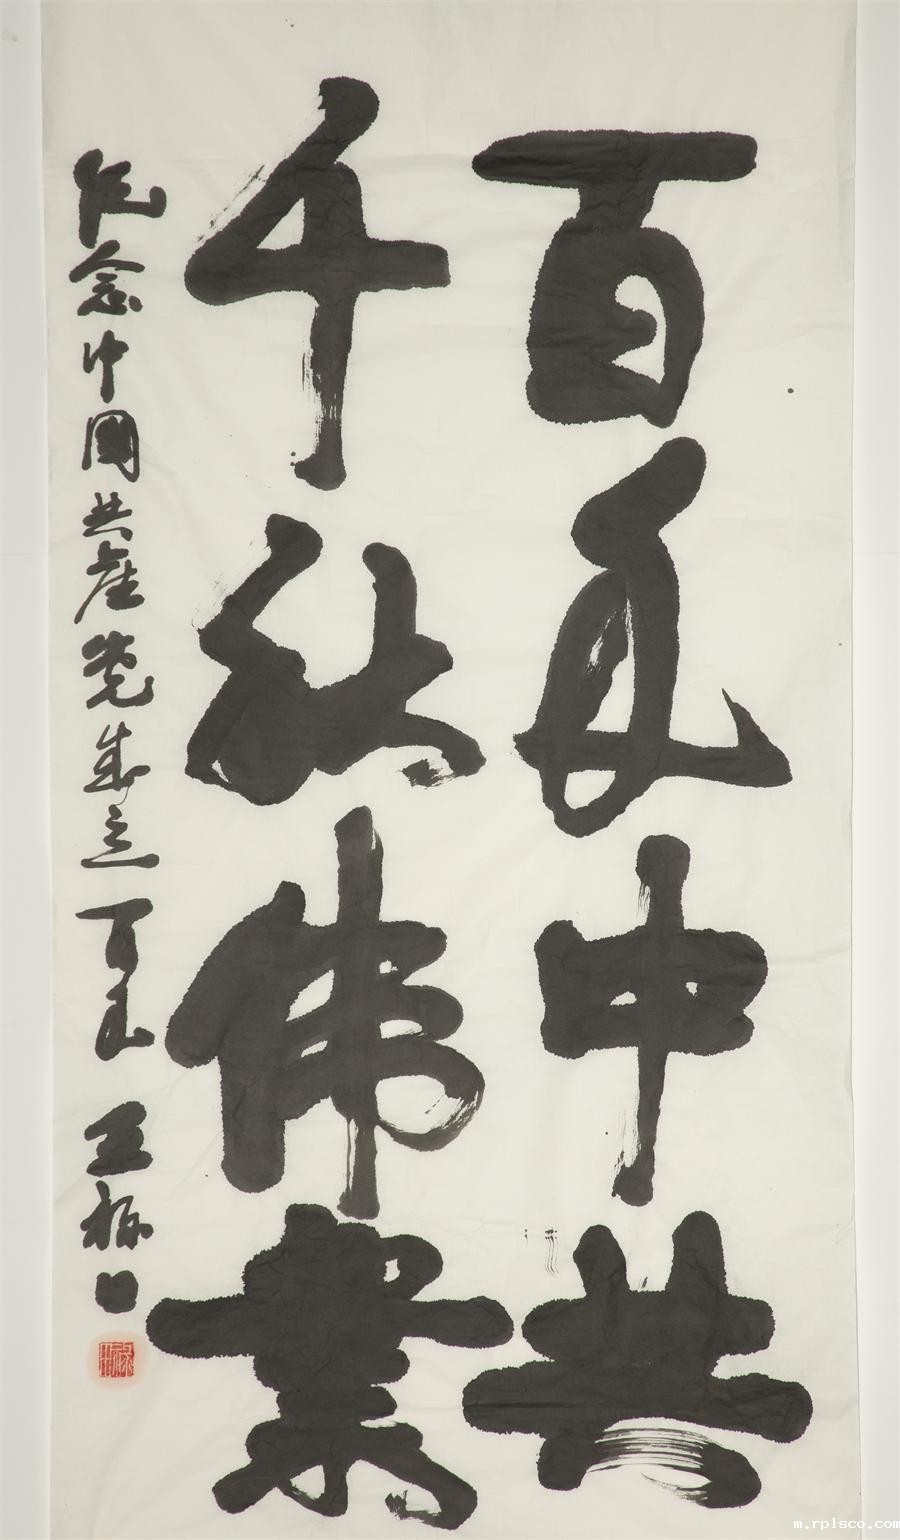 百年中共
千秋伟業
纪念中國共產党成立百年 王
m.rplsco.com